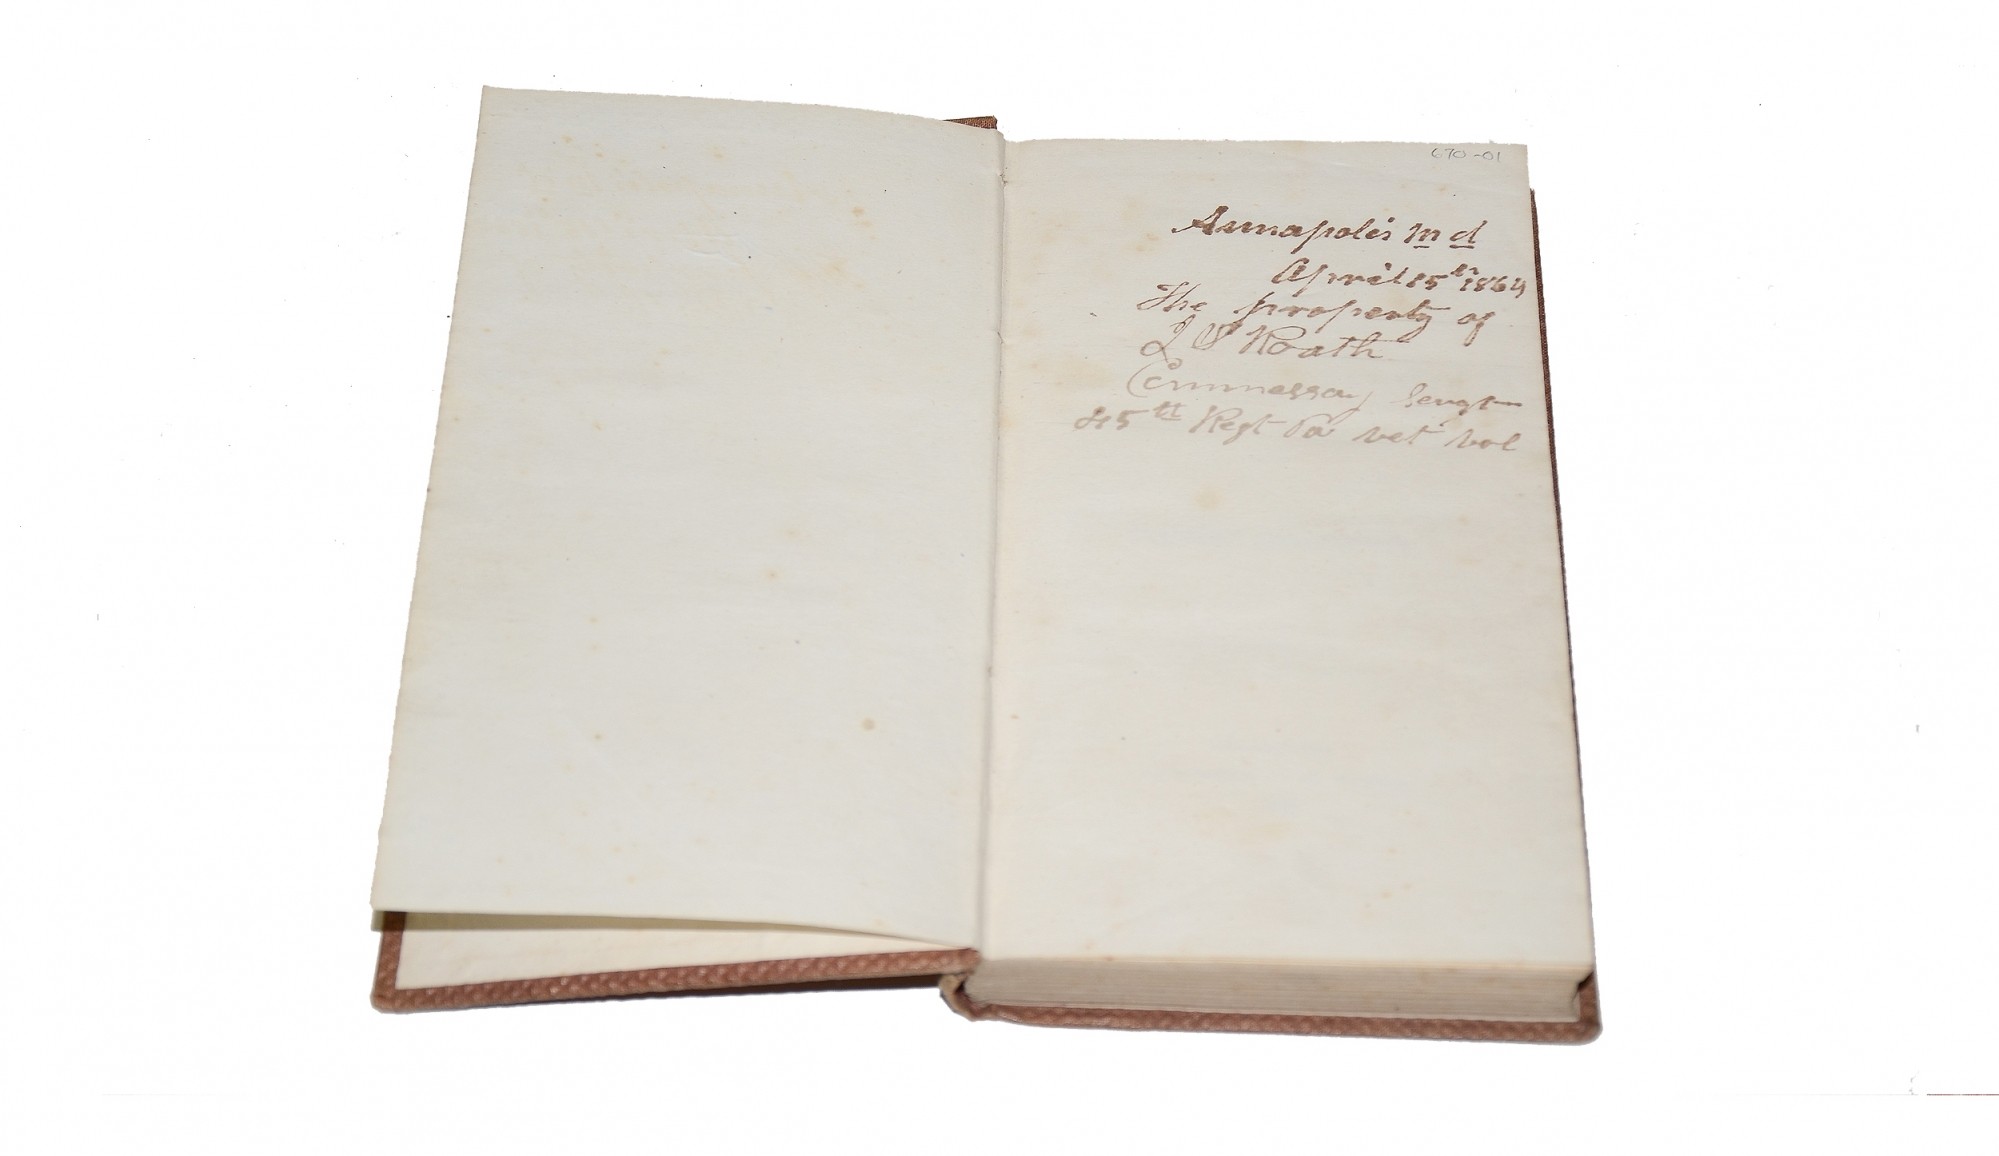 670-01
Annapolis Md
April 15th 1864
The property of
Roath
Commessay Sergt
45th Regt Pa vet vol